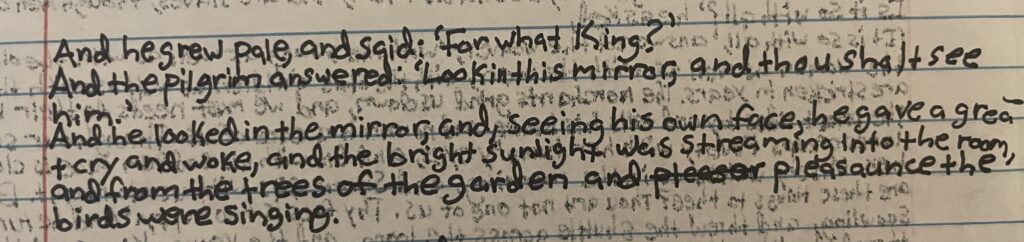 And he grew pale, and said: 'For what King?'
And the pilgrim answered: 'Look in this mirror, and thou shalt see
him.'
And he looked in the mirror, and, seeing his own face, he gave a grea
t cry and woke, and the bright sunlight was streaming into the room,
and from the trees of the garden and pleasaunce the
birds were singing.